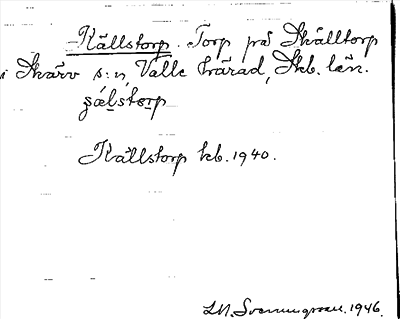 Källstorp. Torp på Skälltorp
i Skärv s:n, Valle härad, Skb. län.
şälstorp
Källstorp kb. 1940.
LM. Svenungsson. 1946.